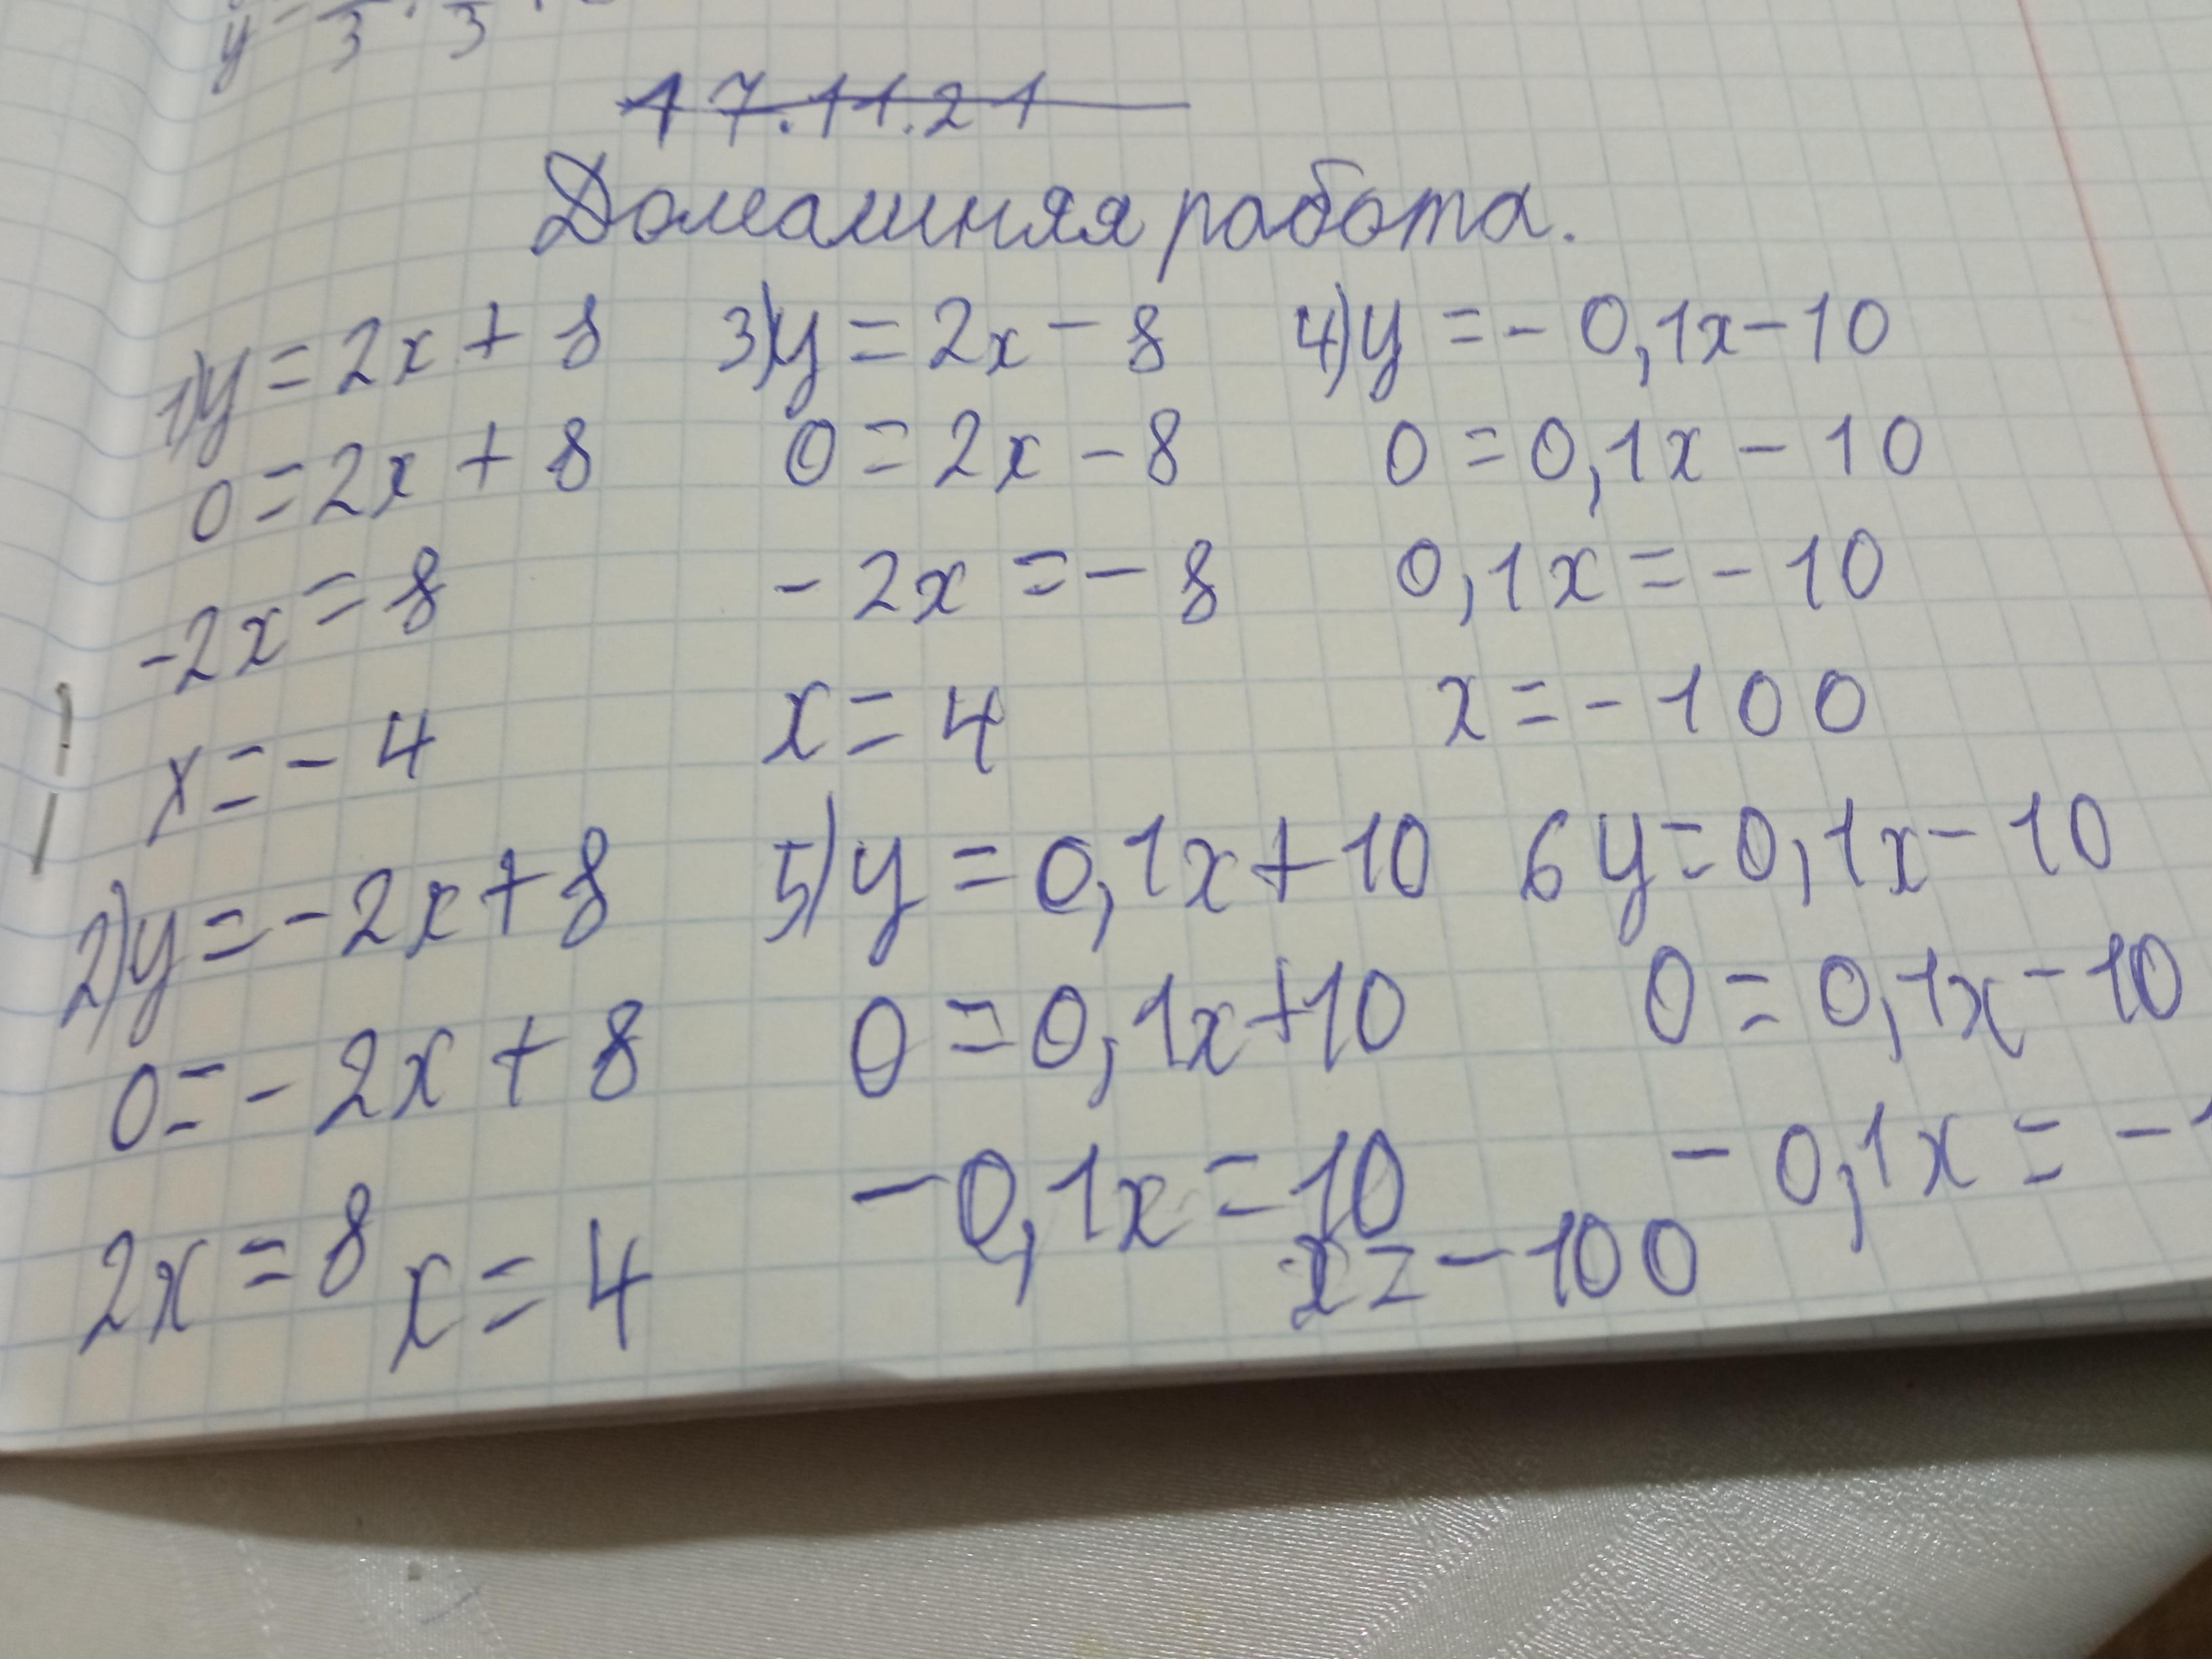 17.11.21
Домашняя работа.
1) y = 2x + 8
0 = 2x + 8
-2x = 8
x = - 4
3) y = 2x - 8
0 = 2x - 8
- 2x = - 8
x = 4
4) y = - 0,1x - 10
0 = 0,1x - 10
0,1x = - 10
x = - 100
2) y = - 2x + 8
0 = - 2x + 8
2x = 8 x = 4
5) y = 0,1x + 10
0 = 0,1x + 10
- 0,1x = 10
x = - 100
6 y = 0,1x - 10
0 = 0,1x - 10
- 0,1x = - 1